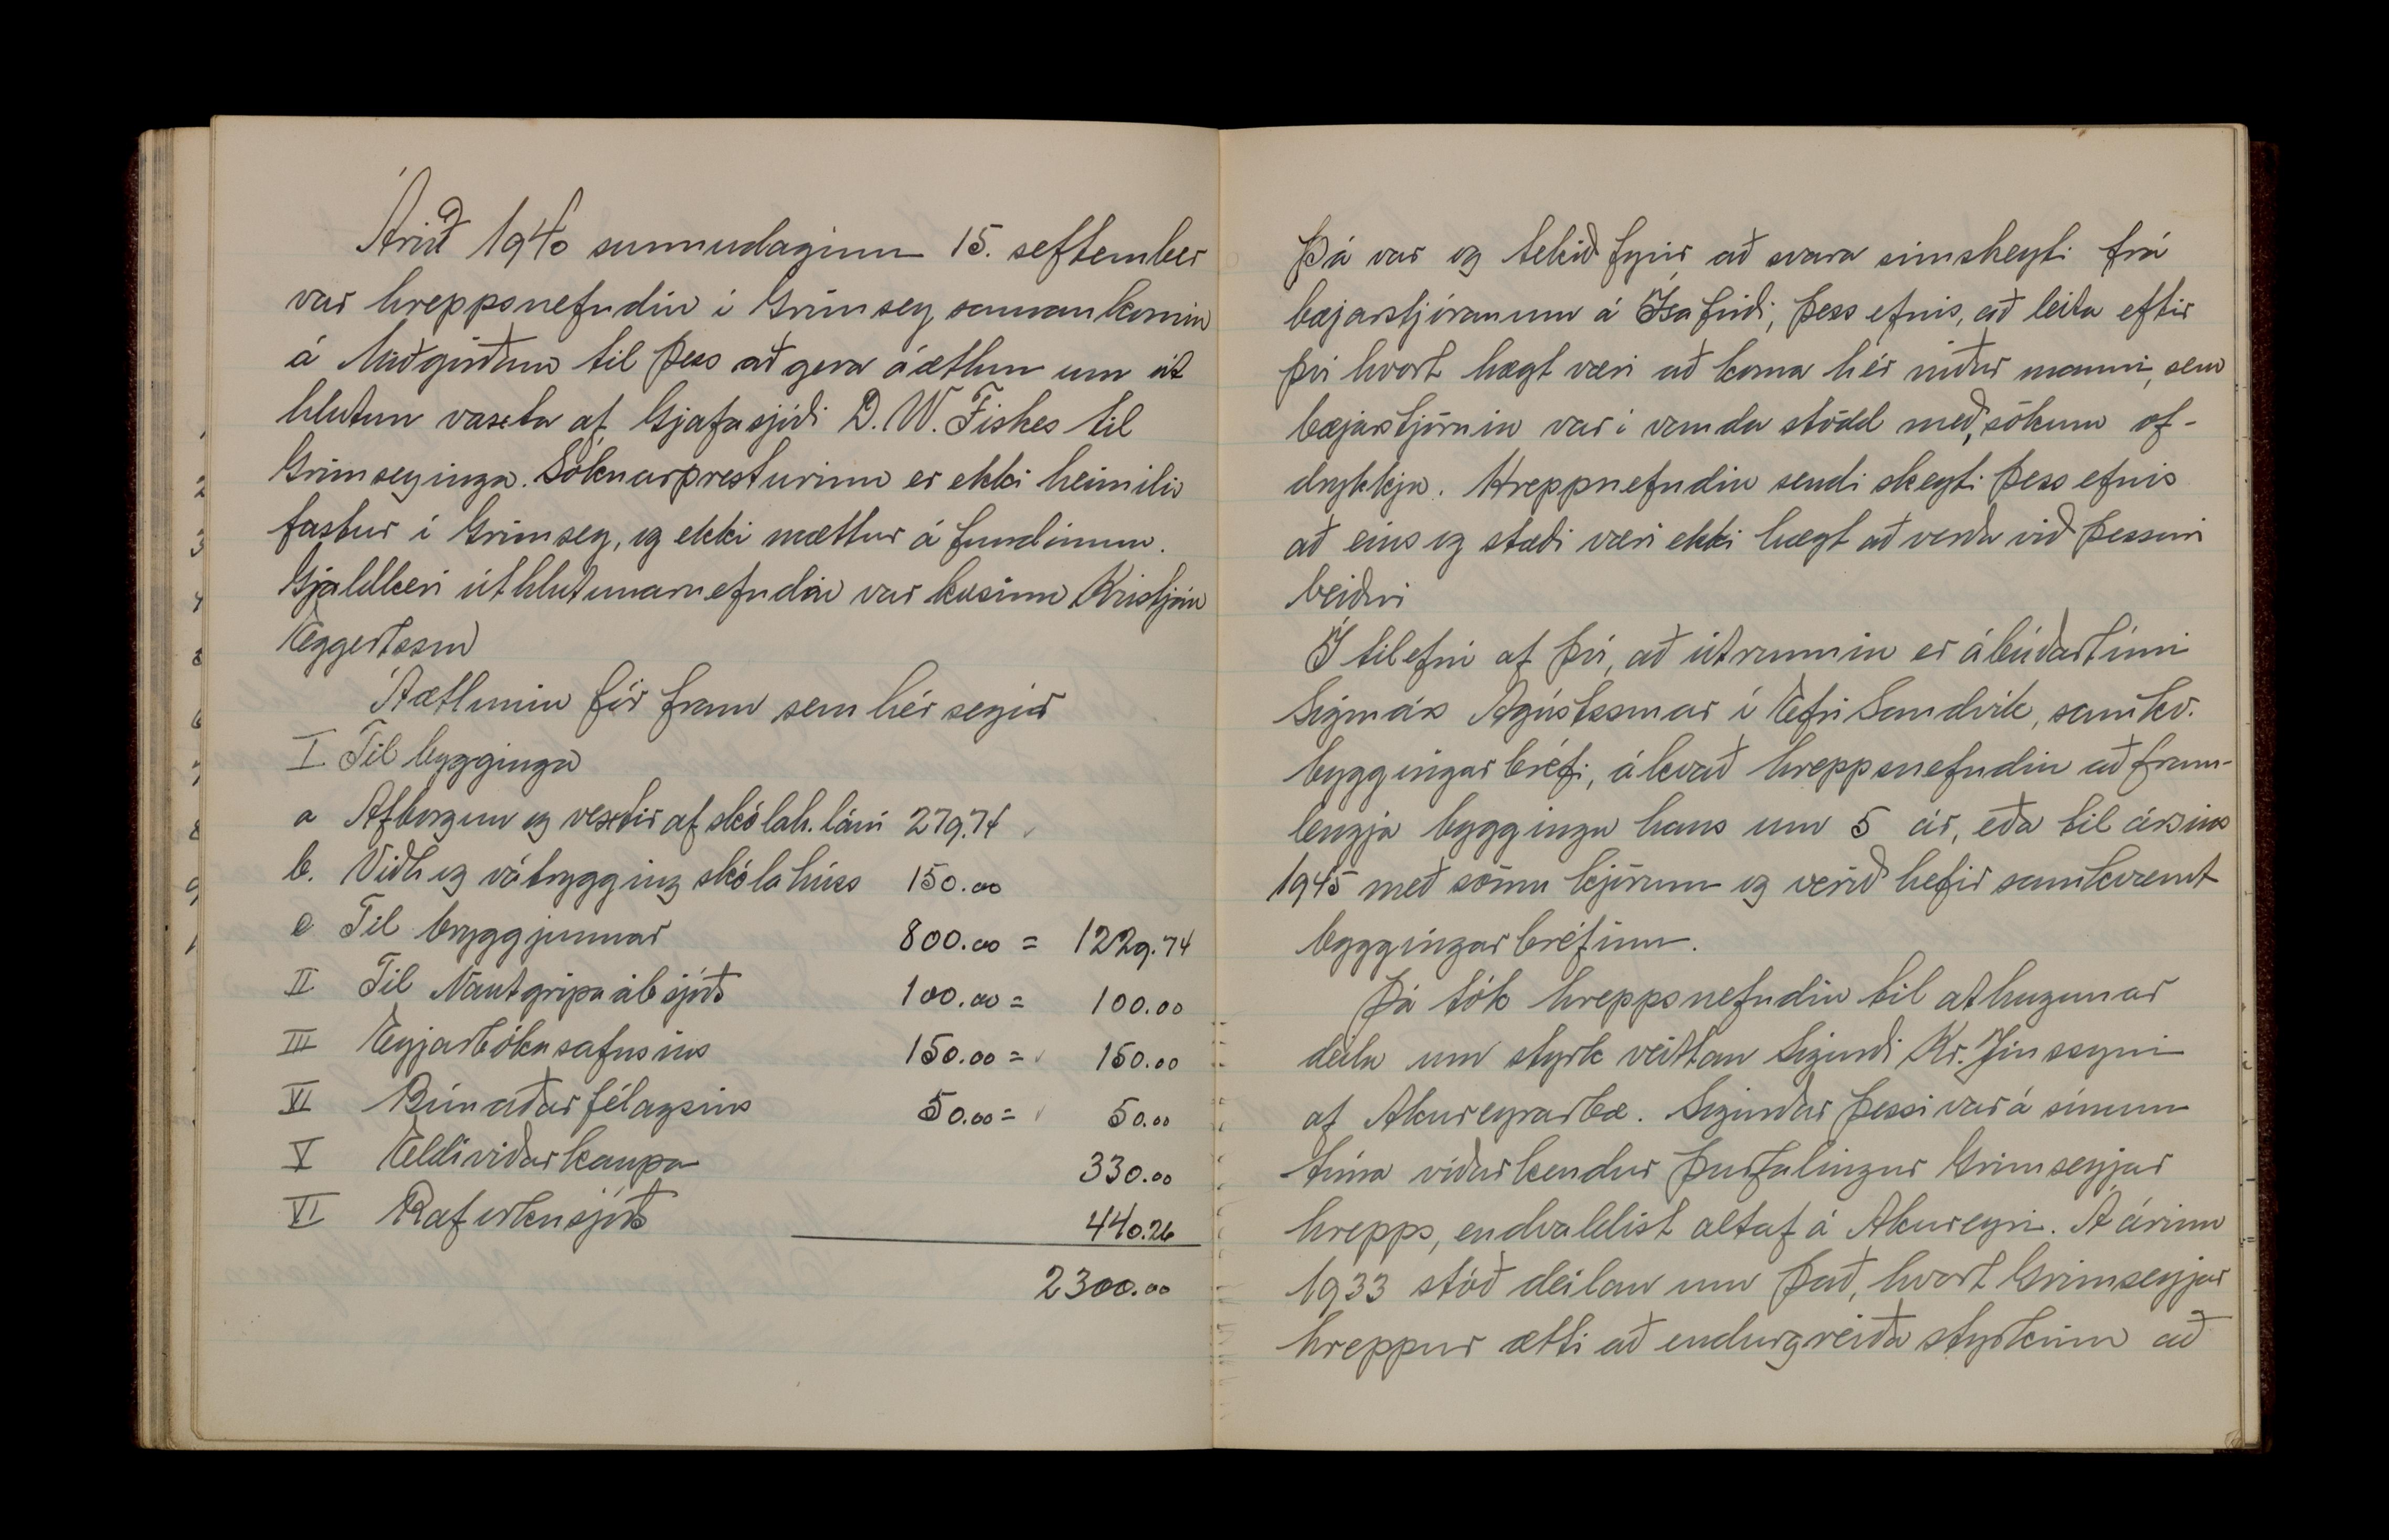 Árið 1940 sunnudaginn 15. september
var hreppsnefndin í Grímsey samankomin
á Miðgörðum til þess að gera áætlun um út
hlutun vaxta af Gjafasjóði D. W. Fiskes til
Grímseyinga. Sóknarpresturinn er ekki heimilis
fastur í Grímsey, og ekki mættur á fundinum.
Gjaldkeri úthlutunarnefndar var kosinn Kristján
Eggertsson
Áætlunin fór fram sem hér segir
I Til bygginga
a Afborgun og vextir af skólah. láni 279.74
b. Viðh og vátrygging skólahúss 150.00
c Til bryggjunnar 800.00 = 1229.74
II Til Nautgripaáb sjóðs 100.00 = 100.00
III Eyjarbókasafnsins 150.00 = 150.00
VI Búnaðarfélagsins 50.00 = 50.00
V Eldiviðarkaupa 330.00
VI Raforkusjóðs 440.26
2300.00
Þá var og tekið fyrir að svara símskeyti frá
bæjarstjóranum á Ísafirði, þess efnis, að leita eftir
því hvort hægt væri að koma hér niður manni, sem
bæjarstjórnin var í vanda stödd með, sökum of-
drykkju. Hreppnefndin sendi skeyti þess efnis
að eins og stæði væri ekki hægt að verða við þessari
beiðni
Í tilefni af því, að útrunnin er ábúðartími
Sigmars Ágústssonar í Efri Sandvík, samkv.
byggingarbréfi, ákvað hreppsnefndin að fram-
lengja byggingu hans um 5 ár, eða til ársins
1945 með sömu kjörum og verið hefir samkvæmt
byggingarbréfinu.
Þá tók hreppsnefndin til athugunar
deilu um styrk veittan Sigurði Kr. Jónssyni
af Akureyrarbæ. Sigurður þessi var á sínum
tíma viðurkendur þurfalingur Grímseyjar
hrepps, en dvaldist altaf á Akureyri. Á árinu
1933 stóð deilan um það, hvort Grímseyjar
hreppur ætti að endurgreiða styrkinn að